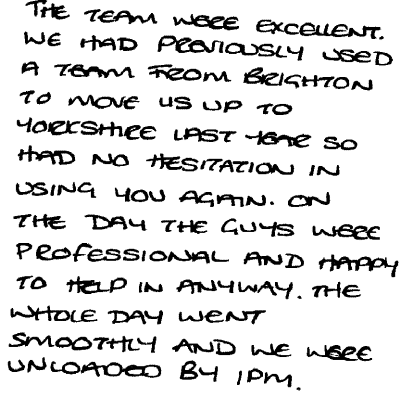 THE TEAM WERE EXCELLENT.
WE HAD PREVIOUSLY USED
A TEAM FROM BRIGHTON
TO MOVE US UP TO
YORKSHIRE LAST YEAR SO
HAD NO HESITATION IN
USING YOU AGAIN. ON
THE DAY THE GUYS WERE
PROFESSIONAL AND HAPPY
TO HELP IN ANYWAY. THE
WHOLE DAY WENT
SMOOTHLY AND WE WERE
UNLOADED BY 1PM.